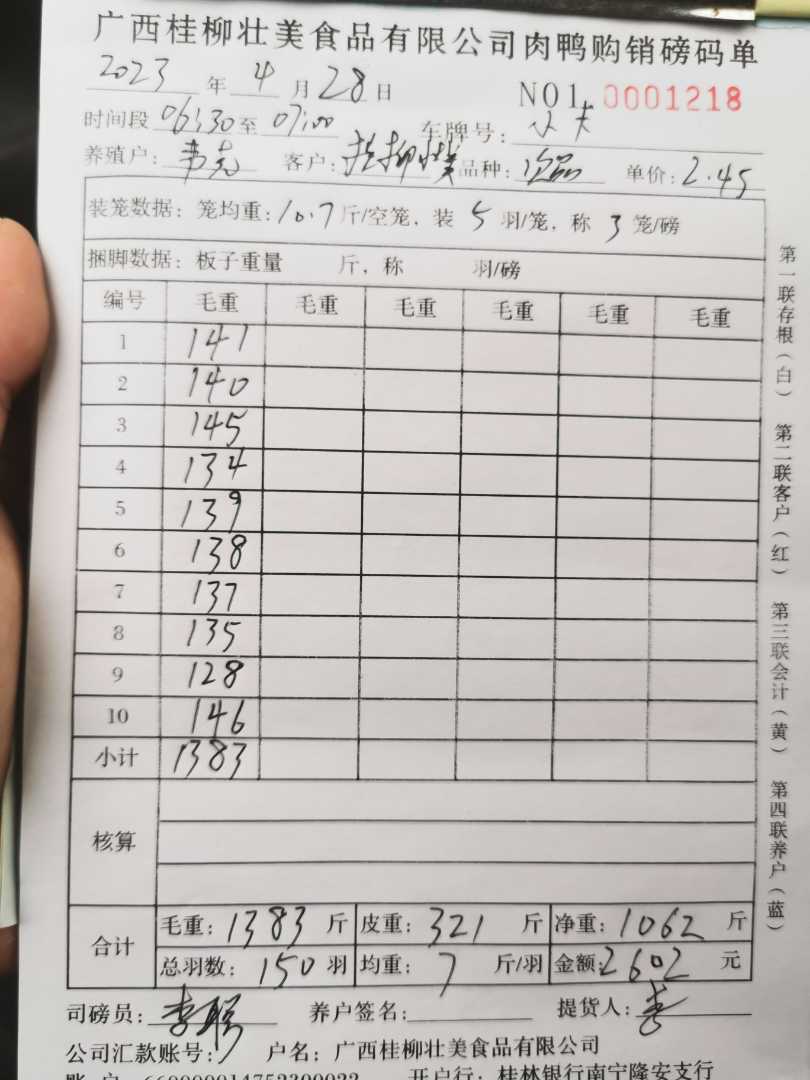 广西桂柳壮美食品有限公司肉鸭购销磅码单
2023 年 4 月 28 日 NO1. 0001218
时间段 06:30 至 07:00 车牌号: 小卡
养殖户: 韦 客户: 桂柳壮美 品种: 次品 单价: 2.45
装笼数据: 笼均重: 10.7 斤/空笼, 装 5 羽/笼, 称 3 笼/磅
捆脚数据: 板子重量 斤, 称 羽/磅
编号 毛重 毛重 毛重 毛重 毛重 毛重
1 141
2 140
3 145
4 134
5 139
6 138
7 137
8 135
9 128
10 146
小计 1383
核算
合计 毛重: 1383 斤 皮重: 321 斤 净重: 1062 斤
总羽数: 150 羽 均重: 7 斤/羽 金额: 2602 元
司磅员: 李 养户签名: 提货人:
公司汇款账号: 户名: 广西桂柳壮美食品有限公司
开户行: 桂林银行南宁隆安支行
第一联存根(白) 第二联客户(红) 第三联会计(黄) 第四联养户(蓝)